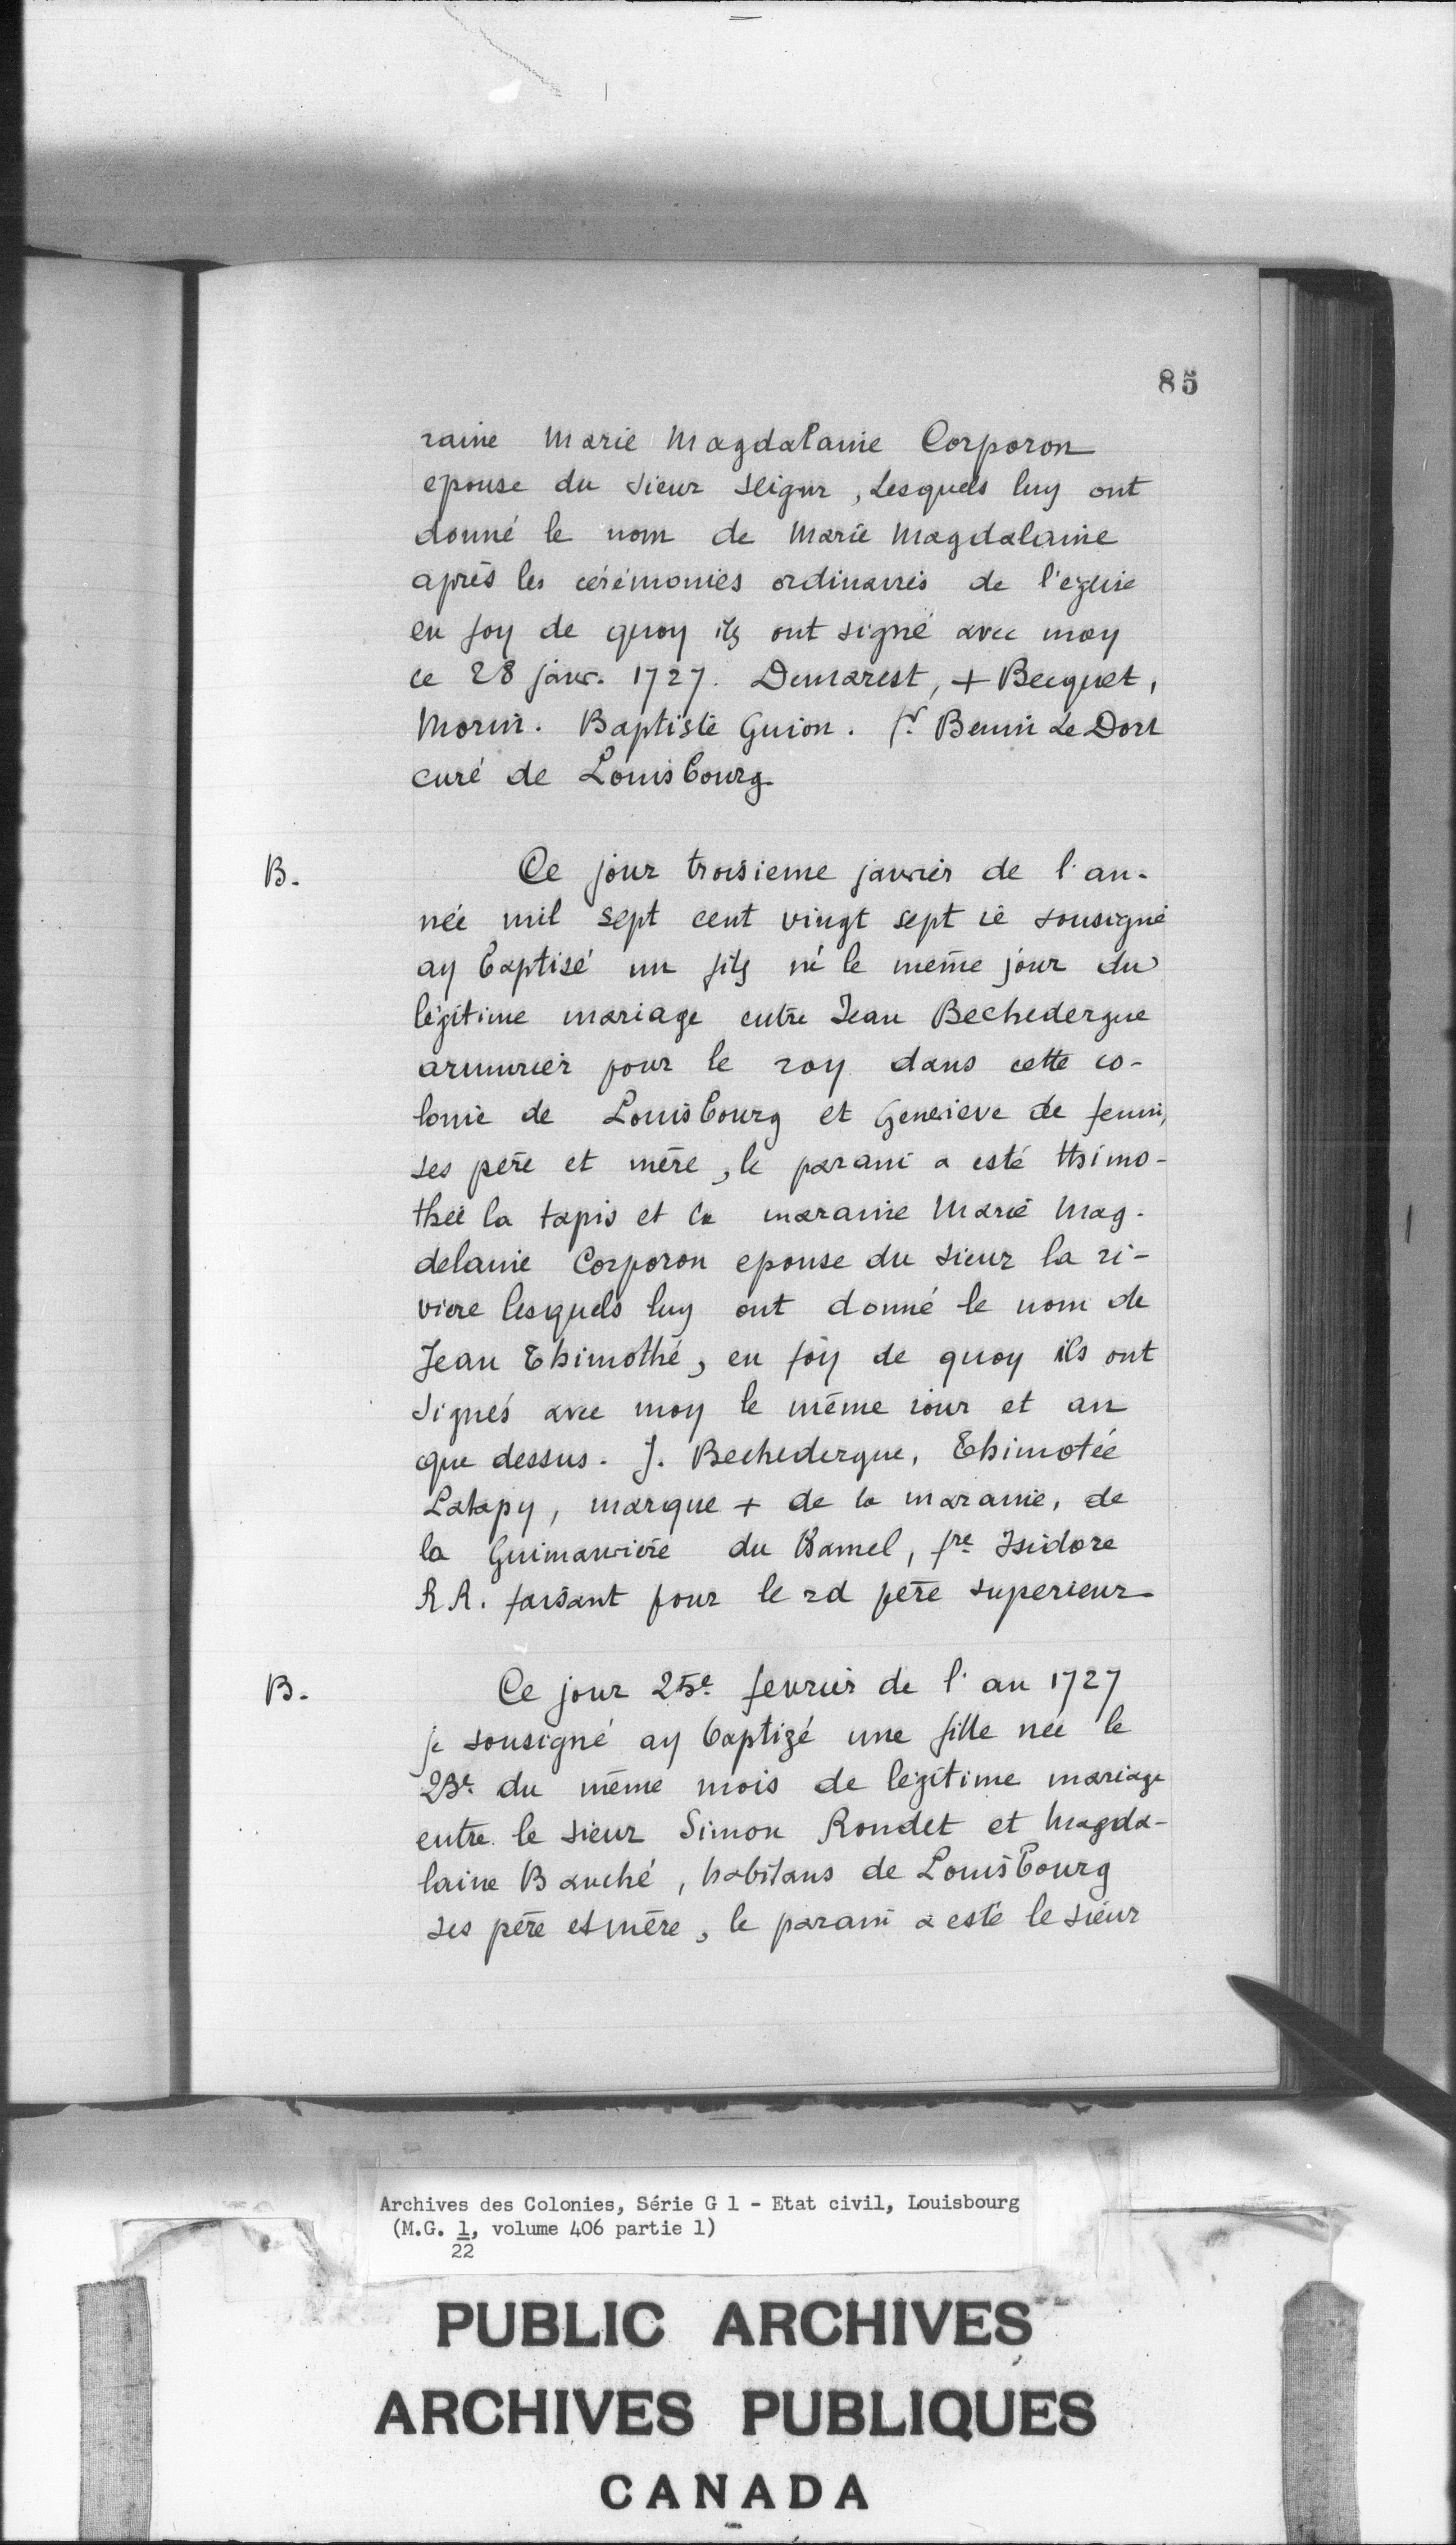 85
raine Marie Magdalaine Corporon
epouse du sieur Seigur, Lesquels luy ont
donné le nom de Marie Magdalaine
après les cérémonies ordinaires de l'eglise
en foy de quoy ils ont signé avec moy
ce 28 janv. 1727. Demarest, + Becquet,
Morin. Baptiste Guion. fr Benin Le Dorz
curé de Louisbourg
B. Ce jour troisieme janvier de l'an-
née mil sept cent vingt sept ie sousigné
ay baptisé un fils né le même jour du
légitime mariage entre Jean Bechedergue
armurier pour le roy dans cette co-
lonie de Louisbourg et Genevieve de
ses père et mère, le parain a esté thimo-
thée la tapis et la maraine Marie Mag-
delaine Corporon epouse du sieur la ri-
viere lesquels luy ont donné le nom de
Jean Thimothé, en foy de quoy ils ont
signés avec moy le même iour et an
que dessus. J. Bechedergue, Thimotée
Latapy, marque + de la maraine, de
la du hamel, fre Isidore
R R. faisant pour le rd père superieur
B. Ce jour 25e fevrier de l'an 1727
je sousigné ay baptizé une fille née le
23e du même mois de legitime mariage
entre le sieur Simon Rondet et Magda-
laine Bauché, habitans de Louisbourg
ses père et mère, le parain a esté le sieur
Archives des Colonies, Série G 1 - Etat civil, Louisbourg
(M.G. 1, volume 406 partie 1)
22
PUBLIC ARCHIVES
ARCHIVES PUBLIQUES
CANADA